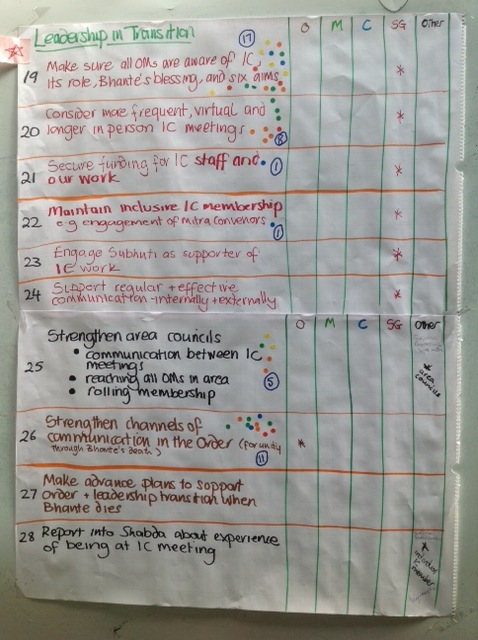 Leadership in Transition
17
O M C SG Other
19 Make sure all OMs are aware of IC,
its role, Bhante's blessing, and six aims
*
20 Consider more frequent, virtual and
longer in person IC meetings
8
*
21 Secure funding for IC staff and
our work
1
*
22 Maintain inclusive IC membership
e.g engagement of mitra convenors
1
*
23 Engage Subhuti as supporter of
IC work
*
24 Support regular + effective
communication - internally + externally
*
O M C SG Other
25 Strengthen area councils
• communication between IC
meetings
• reaching all OMs in area
• rolling membership
5
* area
councils
26 Strengthen channels of
communication in the Order (for unity
through Bhante's death)
11
*
27 Make advance plans to support
Order + leadership transition when
Bhante dies
28 Report into Shabda about experience
of being at IC meeting
*
member